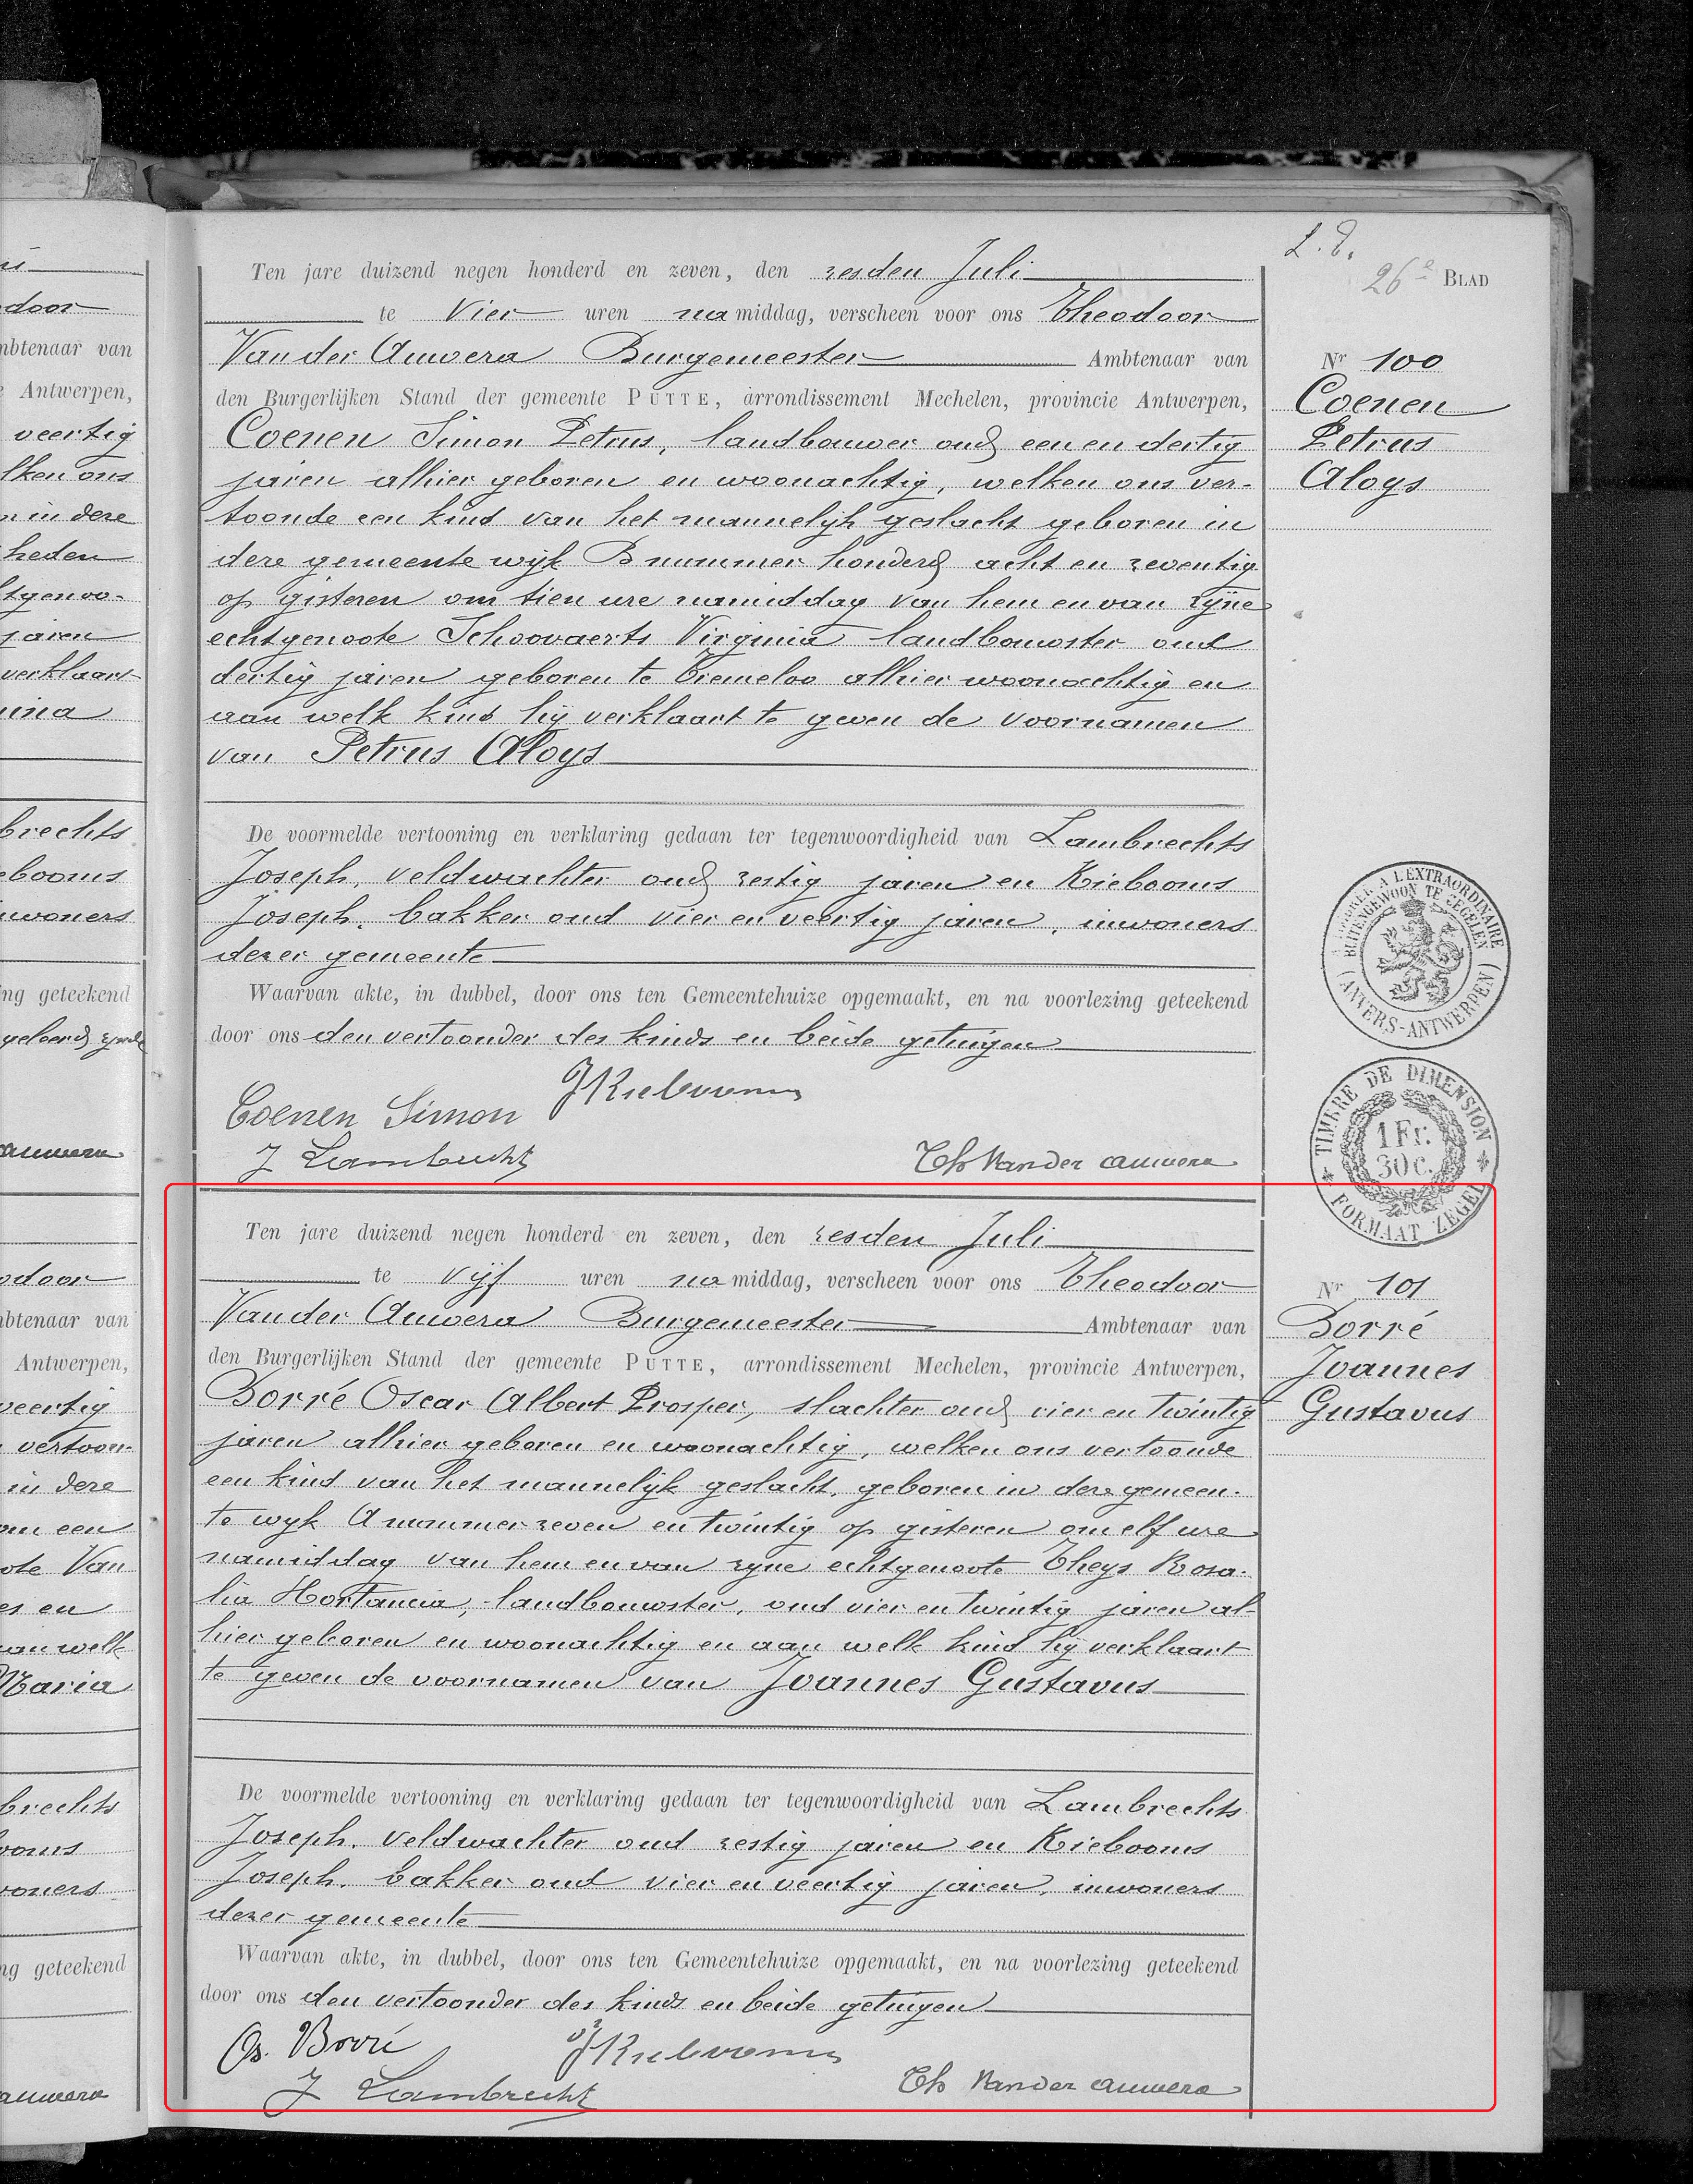 L. E.
26e BLAD
Ten jare duizend negen honderd en zeven, den zesden Juli
te Vier uren na middag, verscheen voor ons Theodoor
Van der Auwera Burgemeester Ambtenaar van
den Burgerlijken Stand der gemeente PUTTE, arrondissement Mechelen, provincie Antwerpen,
Coenen Simon Petrus, landbouwer oud een en dertig
jaren alhier geboren en woonachtig, welken ons ver-
toonde een kind van het mannelijk geslacht geboren in
deze gemeente wijk B nummer honderd acht en zeventig
op gisteren om tien ure namiddag van hem en van zijne
echtgenoote Schoovaerts Virginia landbouwster oud
dertig jaren geboren te Tremeloo alhier woonachtig en
aan welk kind hij verklaart te geven de voornamen
van Petrus Aloys
De voormelde vertooning en verklaring gedaan ter tegenwoordigheid van Lambrechts
Joseph, veldwachter oud zestig jaren en Kiebooms
Joseph, bakker oud vier en veertig jaren, inwoners
dezer gemeente
Waarvan akte, in dubbel, door ons ten Gemeentehuize opgemaakt, en na voorlezing geteekend
door ons den vertoonder des kinds en beide getuigen
JKiebooms
Coenen Simon
J Lambrechts
Th Van der Auwera
Nr 100
Coenen
Petrus
Aloys
TIMBRER A L'EXTRAORDINAIRE
BUITENGEWOON TE ZEGELEN
(ANVERS-ANTWERPEN)
TIMBRE DE DIMENSION
1 Fr.
30 c.
FORMAAT ZEGEL
Ten jare duizend negen honderd en zeven, den zesden Juli
te vijf uren na middag, verscheen voor ons Theodoor
Van der Auwera Burgemeester Ambtenaar van
den Burgerlijken Stand der gemeente PUTTE, arrondissement Mechelen, provincie Antwerpen,
Borré Oscar Albert Prosper, slachter oud vier en twintig
jaren alhier geboren en woonachtig, welken ons vertoonde
een kind van het mannelijk geslacht, geboren in deze gemeen-
te wyk A nummer zeven en twintig op gisteren om elf ure
namiddag van hem en van zyne echtgenoote Theys Rosa-
lia Hortancia, landbouwster, oud vier en twintig jaren al-
hier geboren en woonachtig en aan welk kind hij verklaart
te geven de voornamen van Joannes Gustavus
De voormelde vertooning en verklaring gedaan ter tegenwoordigheid van Lambrechts
Joseph, veldwachter oud zestig jaren en Kiebooms
Joseph, bakker oud vier en veertig jaren, inwoners
dezer gemeente
Waarvan akte, in dubbel, door ons ten Gemeentehuize opgemaakt, en na voorlezing geteekend
door ons den vertoonder des kinds en beide getuigen
Os. Borré
JKiebooms
J Lambrechts
Th Van der Auwera
Nr 101
Borré
Joannes
Gustavus